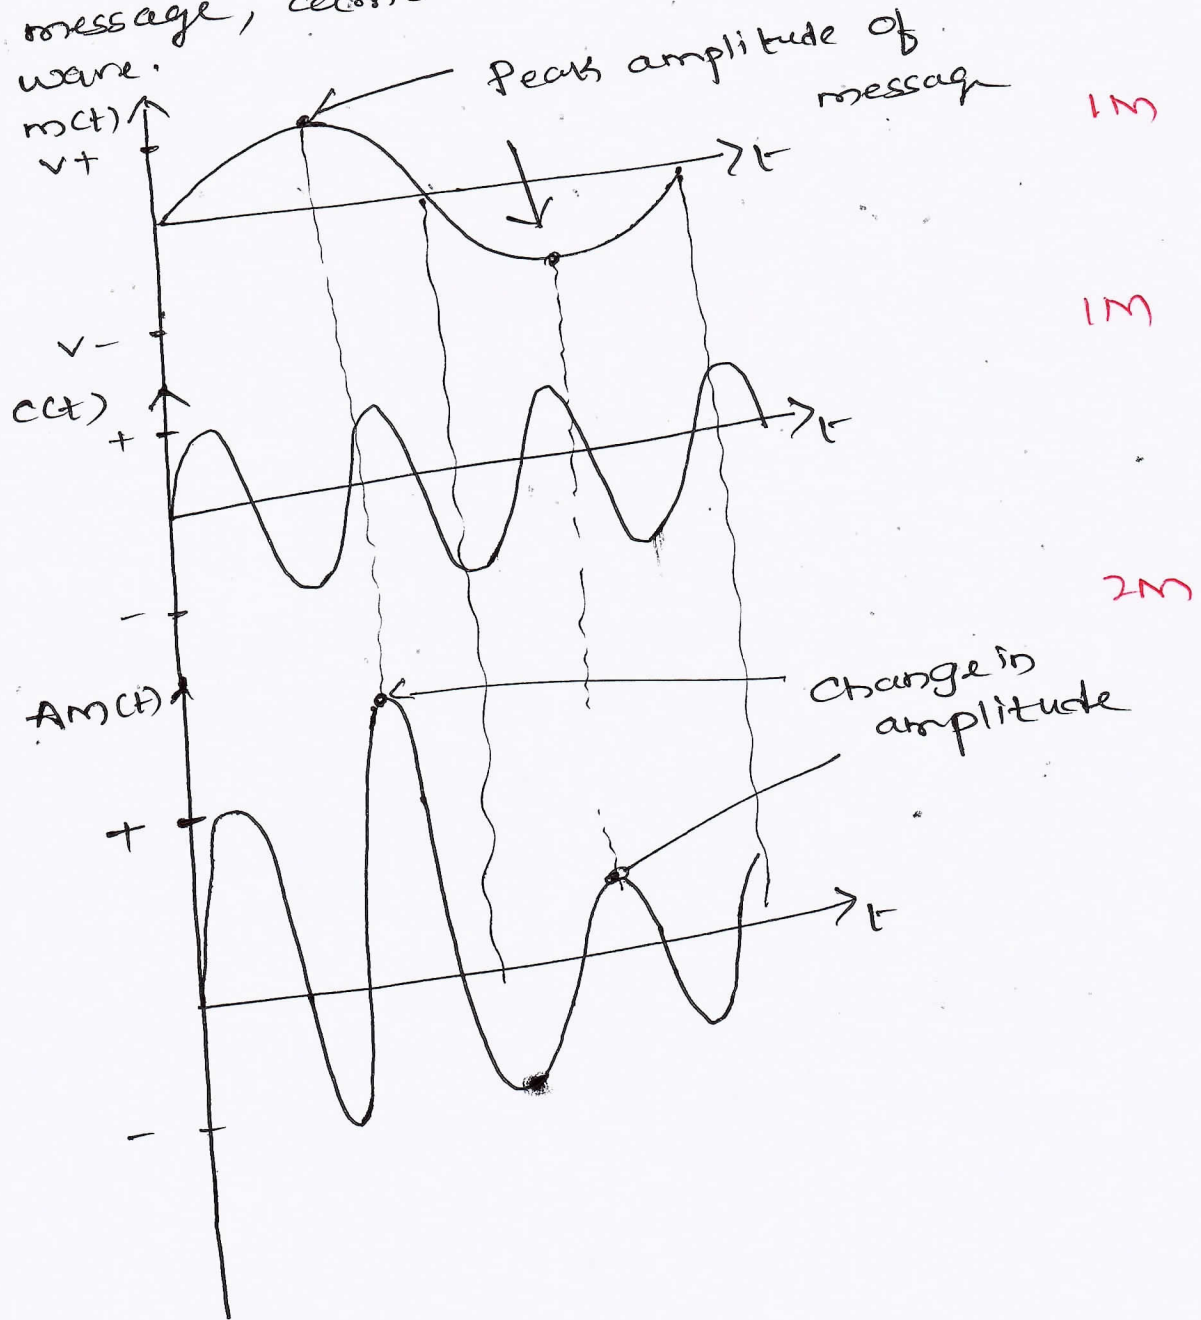 message,
wave.
Peak amplitude of
message
m(t)
V+
t
1M
V-
1M
c(t)
+
t
-
2M
Change in
amplitude
AM(t)
+
t
-